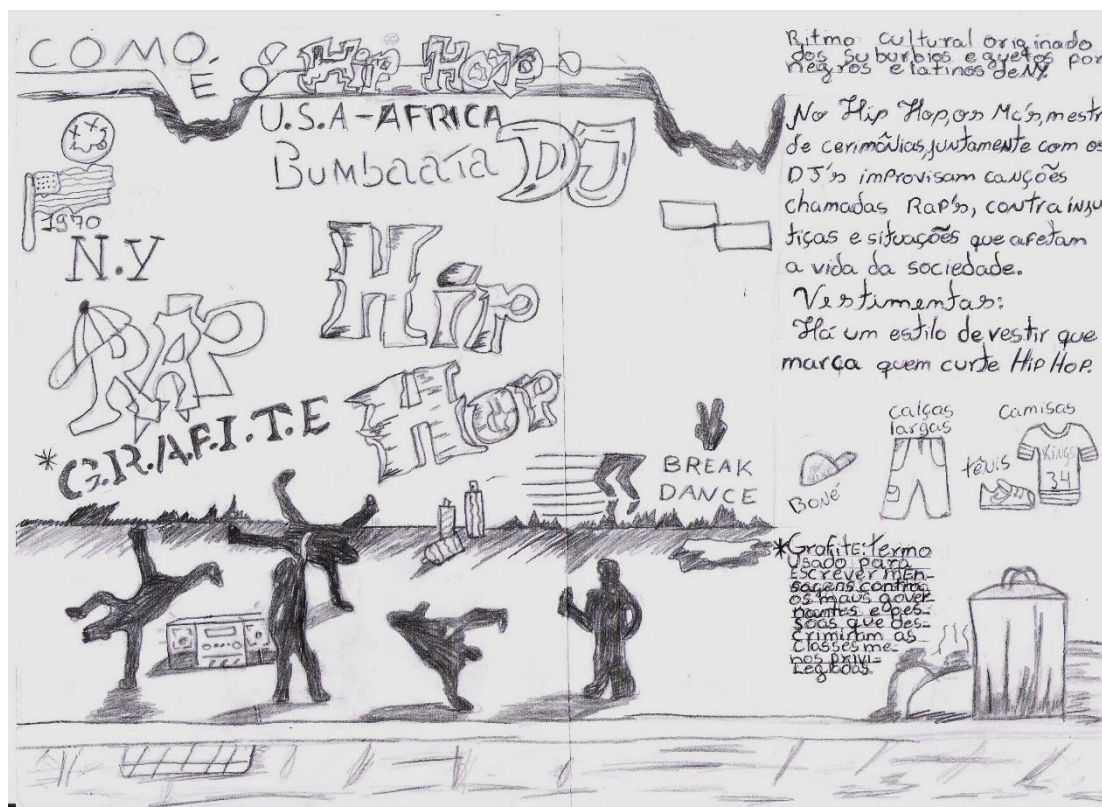 COMO
É
Hip Hop
U.S.A-AFRICA
Bumbaata
DJ
1970
N.Y
RAP
Hip
Hop
*G.R.A.F.I.T.E
BREAK
DANCE
Ritmo cultural originado
dos suburbios e guetos por
negros e latinos de NY.
No Hip Hop, os Mc's, mestr
de cerimônias, juntamente com os
DJ's improvisam canções
chamadas Rap's, contra injus
tiças e situações que afetam
a vida da sociedade.
Vestimentas:
Há um estilo de vestir que
marca quem curte Hip Hop.
Boné
calças
largas
tênis
Camisas
KINGS
34
*Grafite: termo
usado para
escrever men-
sagens contra
os maus gover
nantes e pes-
soas que des-
criminam as
classes me-
nos privi-
legiadas